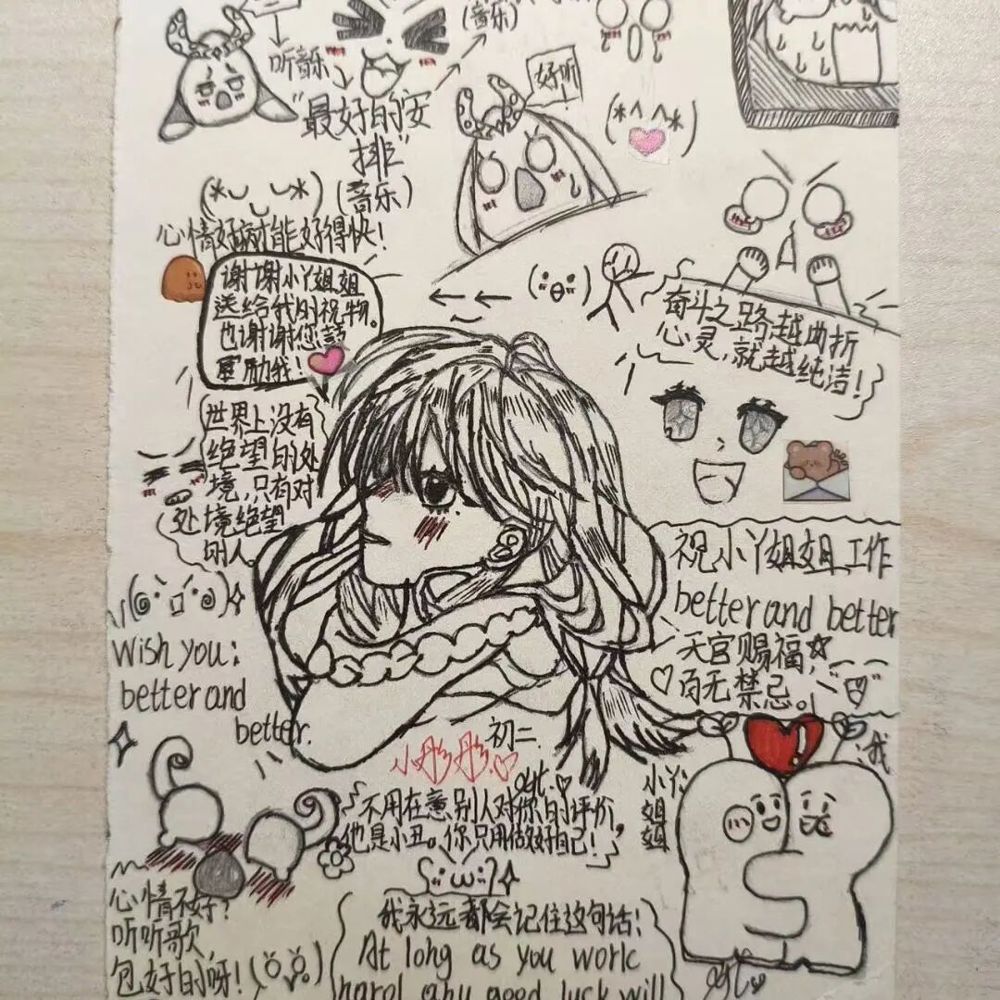 (音乐)
听音乐
"最好的安
排"
(音乐)
好听
心情好病才能好得快!
谢谢小丫姐姐
送给我的祝物。
也谢谢您
励我!
奋斗之路越曲折
心灵,就越纯洁!
世界上没有
绝望的处
境,只有对
处境绝望
的人
祝小丫姐姐工作
better and better
天官赐福☆
♡百无禁忌。
Wish you:
better and
better.
初二
小彤彤.♡
小丫
姐
姐
我
不用在意别人对你的评价,
他是小丑。你只用做好自己!
心情不好?
听听歌
包好的呀!
我永远都会记住这句话:
At long as you work
hard any good luck will